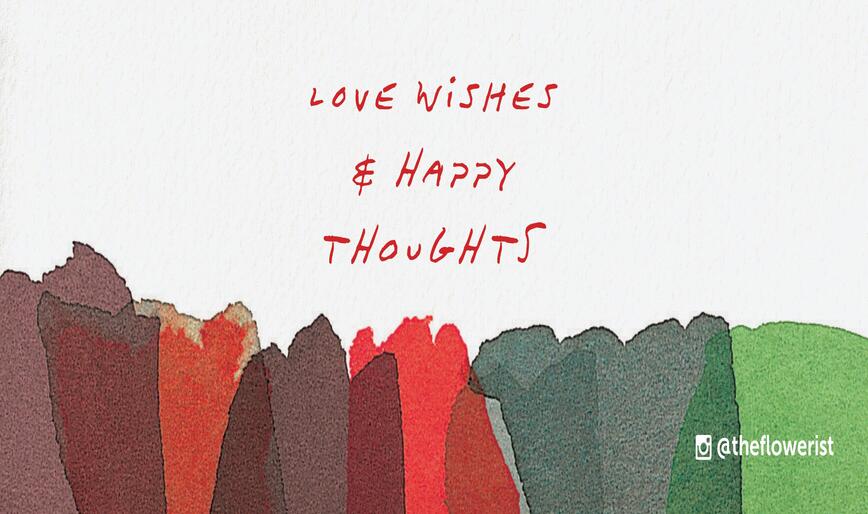 LOVE WiSHES
& HAPPY
THOUGHTS
@theflowerist